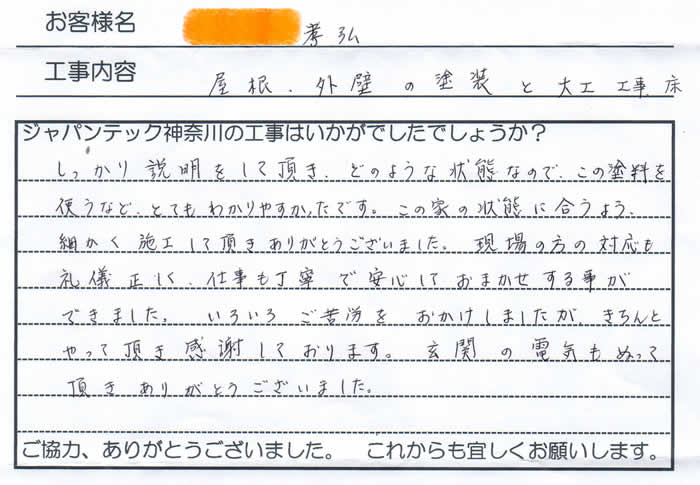 お客様名 孝弘
工事内容 屋根、外壁の塗装と大工工事、床
ジャパンテック神奈川の工事はいかがでしたでしょうか?
しっかり説明をして頂き、どのような状態なので、この塗料を
使うなど、とてもわかりやすかったです。この家の状態に合うよう、
細かく施工して頂きありがとうございました。現場の方の対応も
礼儀正しく、仕事も丁寧で安心しておまかせする事が
できました。いろいろご苦労をおかけしましたが、きちんと
やって頂き感謝しております。玄関の電気もぬって
頂きありがとうございました。
ご協力、ありがとうございました。 これからも宜しくお願いします。